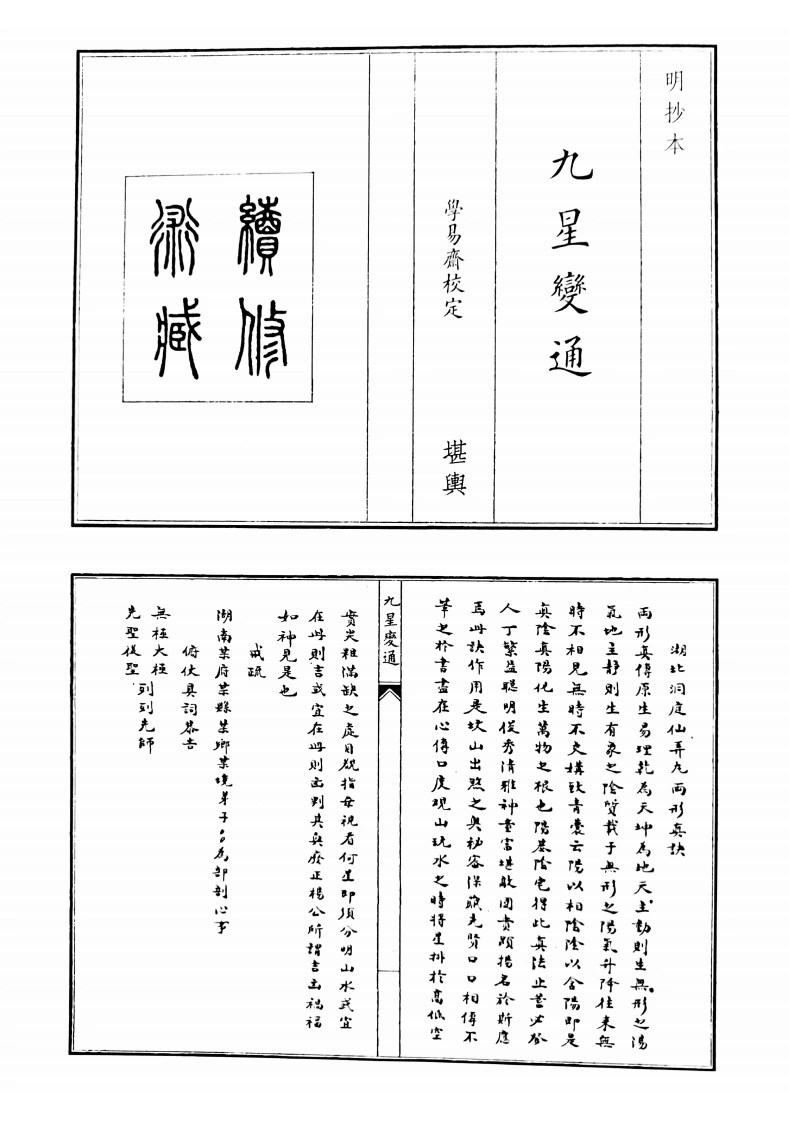 明抄本
九星變通
學易齋校定　堪輿
續修
術藏
湖北洞庭仙弄九兩形真訣
兩形真傳原生易理乾為天坤為地天主動則生無形之陽
氣地主靜則生有象之陰質載于無形之陽氣升降往來無
時不相見無時不交媾故青囊云陽以相陰陰以含陽即是
真陰真陽化生萬物之根也陽基陰宅得此真法止葬必發
人丁繁益聰明俊秀清雅神童富堪敵國貴顯揚名於斯應
焉此訣作用是坎山出煞之奧秘容深藏先賢口口相傳不
筆之於書盡在心傳口度观山玩水之時將星排於高低空
九星變通
實尖粗滿缺之處目觀指母視看何星即須分明山水或宜
在此則吉或宜在此則凶判其興廢正楊公所謂吉凶禍福
如神見是也
戒疏
湖南某府某縣某鄉某境弟子○○為部剖心事
俯伏具詞恭告
無極太極
列列先師
先聖後聖